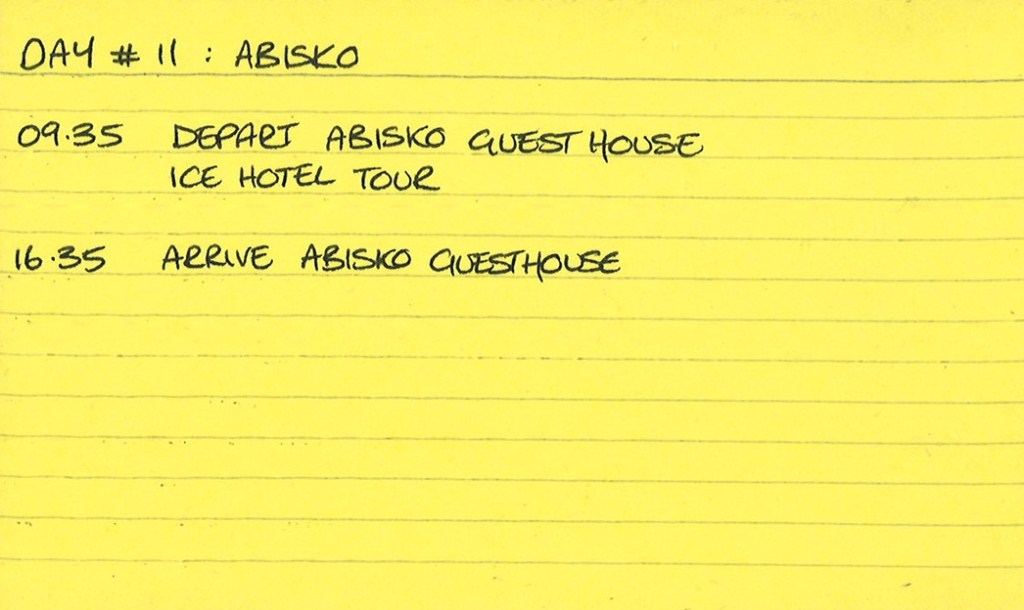 DAY # 11 : ABISKO
09.35 DEPART ABISKO GUEST HOUSE
ICE HOTEL TOUR
16.35 ARRIVE ABISKO GUESTHOUSE